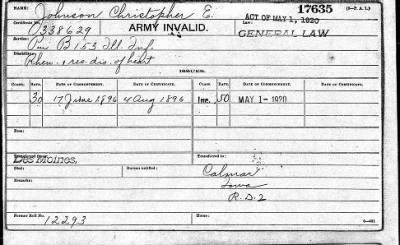 NAME: Johnson Christopher E. 17635 (3—P. A. L.)
Certificate No. 338629 ARMY INVALID. ACT OF MAY 1, 1920
GENERAL LAW
Pvt B 153 Ill. Inf
Disability:
Rheu. & res. dis. of heart
ISSUES.
CLASS. RATE. DATE OF COMMENCEMENT. DATE OF CERTIFICATE. CLASS. RATE. DATE OF COMMENCEMENT. DATE OF CERTIFICATE.
30 17 June 1896 4 Aug 1896 Inc. 50 MAY 1-1920
Transferred from: Transferred to:
Des Moines. Calmar
Iowa
R.D.2
Bureau notified:
Remarks:
Former Roll No.
12293